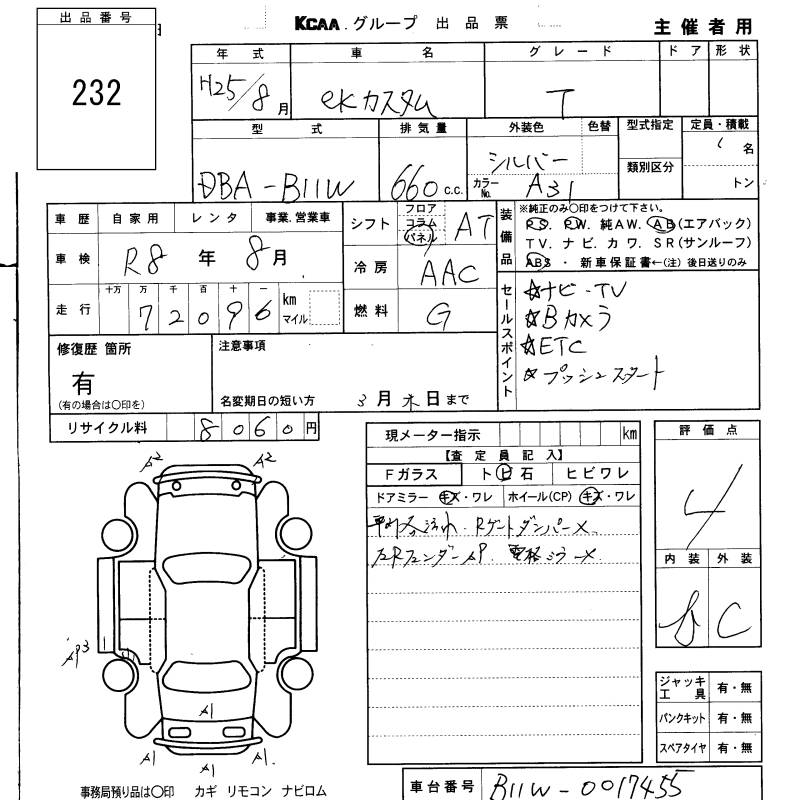 出品番号
232
KCAA グループ 出品票
主催者用
年式 車名 グレード ドア 形状
H25/8月 eKカスタム T
型式 排気量 外装色 色替 型式指定 定員・積載
DBA-B11W 660 c.c. シルバー
カラーNo. A31
類別区分
名
トン
車歴 自家用 レンタ 事業.営業車
車検 R8年 8月
走行 十万 万 千 百 十 一
7 2 0 9 6 km マイル
シフト フロア コラム パネル AT
冷房 AAC
燃料 G
装備品
※純正のみ○印をつけて下さい。
P.S. P.W. 純A.W. A.B(エアバック)
T.V. ナビ. カワ. S.R(サンルーフ)
ABS ・ 新車保証書←(注) 後日送りのみ
セールスポイント
☆ナビ・TV
☆Bカメラ
☆ETC
☆プッシュスタート
修復歴 箇所
有
(有の場合は○印を)
注意事項
名変期日の短い方 3月末日まで
リサイクル料 8060円
現メーター指示 km
【査定員記入】
Fガラス トビ石 ヒビワレ
ドアミラー キズ・ワレ ホイール(CP) キズ・ワレ
Rゲートダンパー×
左Rフェンダー 電格ミラー×
評価点
4
内装 外装
C
A2 A2
A1
A1 A1 A1
ジャッキ工具 有・無
パンクキット 有・無
スペアタイヤ 有・無
事務局預り品は○印 カギ リモコン ナビロム
車台番号 B11W-0017455